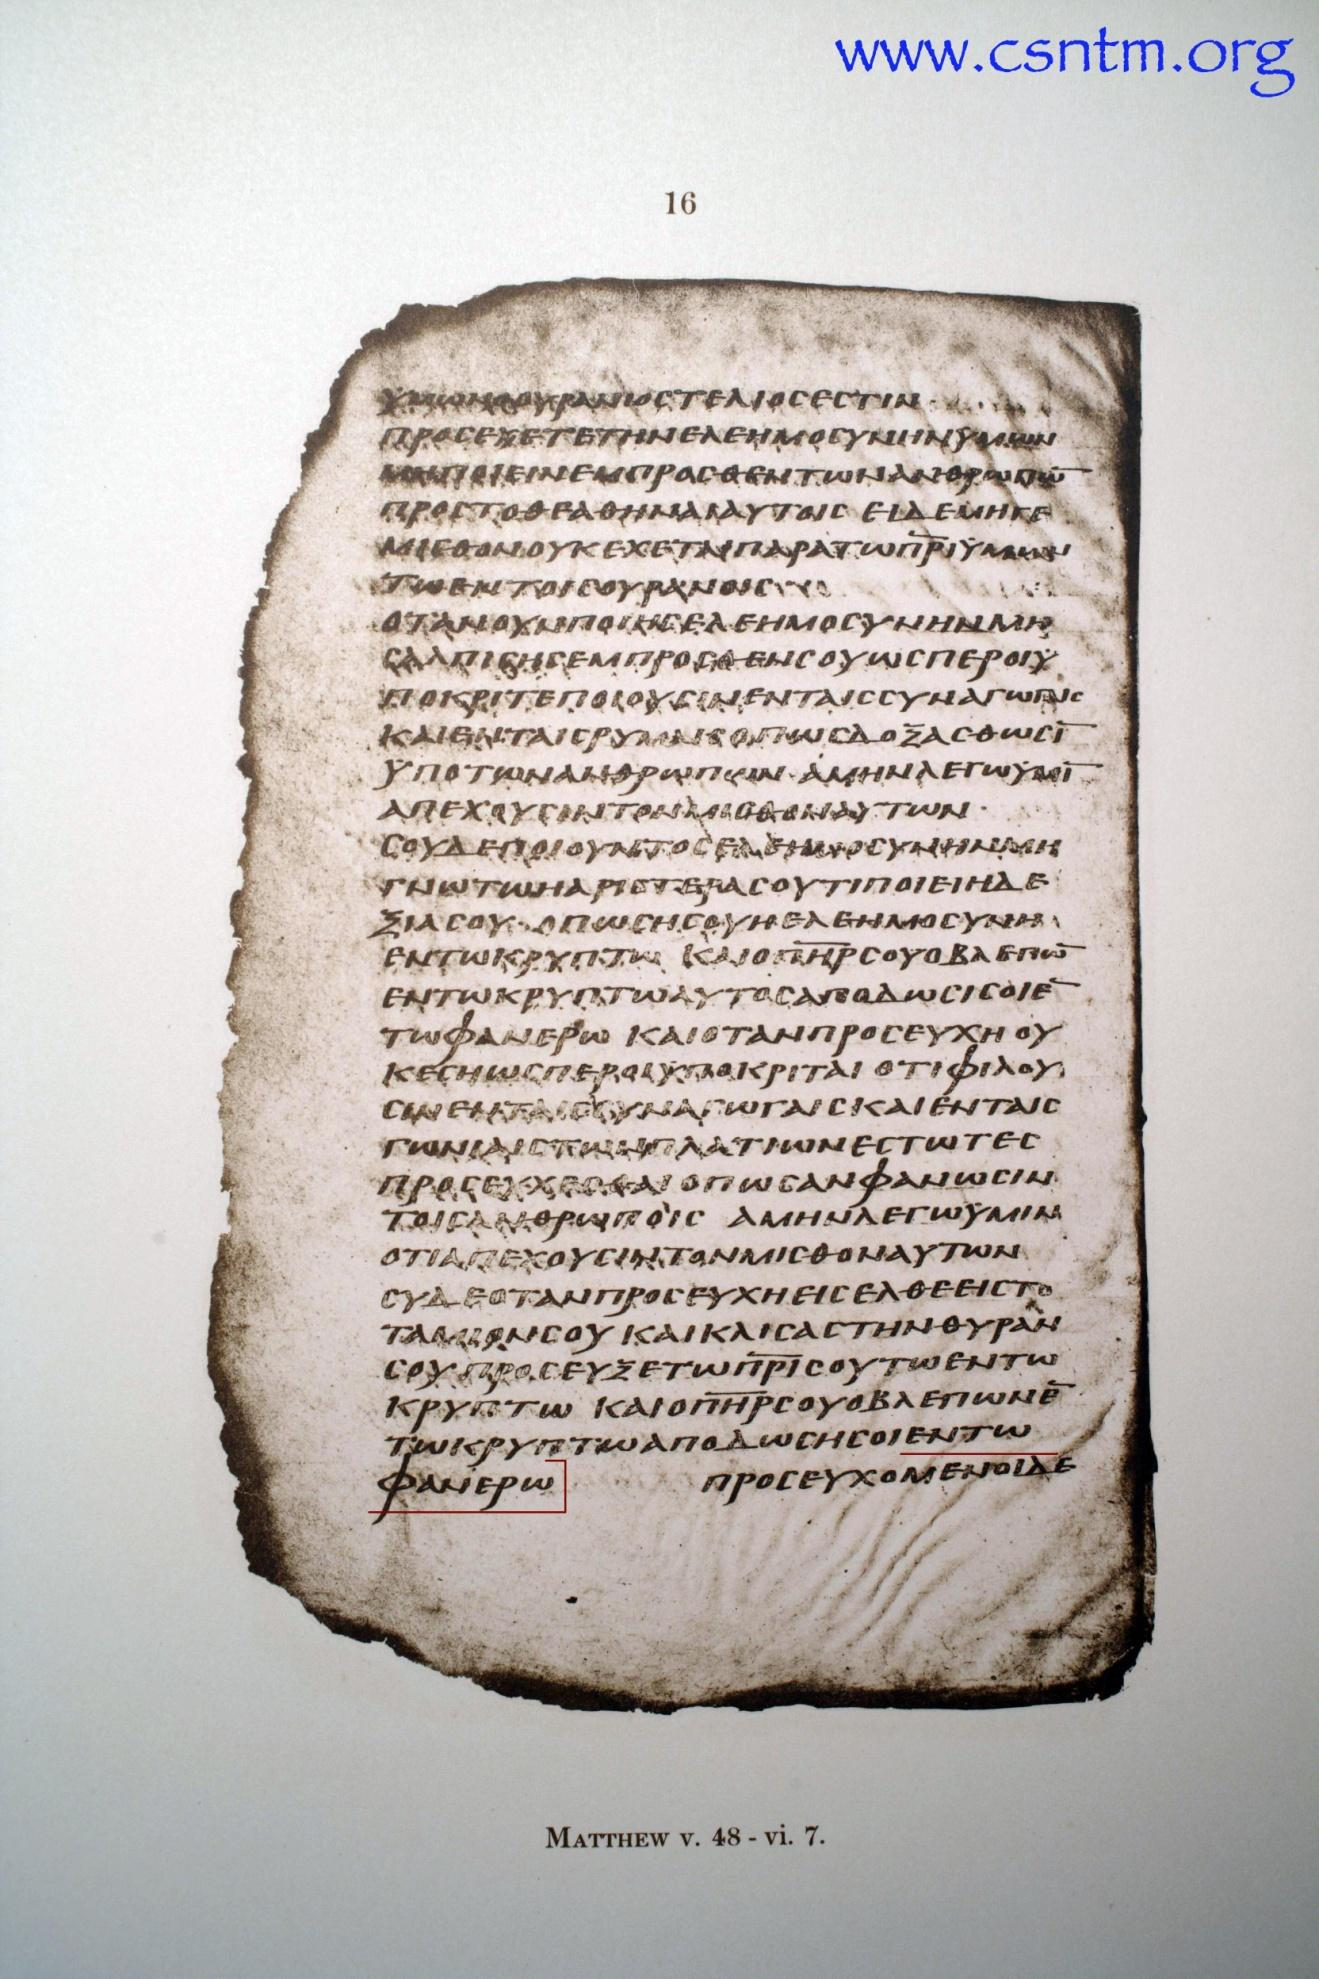 www.csntm.org
16
ΥΜΩΝΟΟΥΡΑΝΙΟΣΤΕΛΙΟϹΕϹΤΙΝ
ΠΡΟϹΕΧΕΤΕΤΗΝΕΛΕΗΜΟϹΥΝΗΝΫΜΩΝ
ΜΗΠΟΙΕΙΝΕΜΠΡΟϹΘΕΝΤΩΝΑΝΘΡΩΠΩ̅
ΠΡΟϹΤΟΘΕΑΘΗΝΑΙΑΥΤΟΙϹ ΕΙΔΕΜΗΓΕ
ΜΙϹΘΟΝΟΥΚΕΧΕΤΑΙΠΑΡΑΤΩΠ̅Ρ̅Ι̅ΫΜΩΝ
ΤΩΕΝΤΟΙϹΟΥΡΑΝΟΙϹ
ΟΤΑΝΟΥΝΠΟΙΗϹΕΛΕΗΜΟϹΥΝΗΝΜΗ
ϹΑΛΠΙϹΗϹΕΜΠΡΟϹΘΕΝϹΟΥΩϹΠΕΡΟΙΫ
ΠΟΚΡΙΤΕΠΟΙΟΥϹΙΝΕΝΤΑΙϹϹΥΝΑΓΩΓΑΙϹ
ΚΑΙΕΝΤΑΙϹΡΥΜΑΙϹΟΠΩϹΔΟΞΑϹΘΩϹΙ̅
ΫΠΟΤΩΝΑΝΘΡΩΠΩΝ·ΑΜΗΝΛΕΓΩΫΜΙ̅
ΑΠΕΧΟΥϹΙΝΤΟΝΜΙϹΘΟΝΑΥΤΩΝ·
ϹΟΥΔΕΠΟΙΟΥΝΤΟϹΕΛΕΗΜΟϹΥΝΗΝΜΗ
ΓΝΩΤΩΗΑΡΙϹΤΕΡΑϹΟΥΤΙΠΟΙΕΙΗΔΕ
ΞΙΑϹΟΥ·ΟΠΩϹΗϹΟΥΗΕΛΕΗΜΟϹΥΝΗ
ΕΝΤΩΚΡΥΠΤΩ ΚΑΙΟΠ̅Η̅Ρ̅ϹΟΥΟΒΛΕΠΩ̅
ΕΝΤΩΚΡΥΠΤΩΑΥΤΟϹΑΠΟΔΩϹΙϹΟΙΕ̅
ΤΩΦΑΝΕΡΩ ΚΑΙΟΤΑΝΠΡΟϹΕΥΧΗΟΥ
ΚΕϹΗΩϹΠΕΡΟΙΫΠΟΚΡΙΤΑΙ ΟΤΙΦΙΛΟΥ
ϹΙΝΕΝΤΑΙϹϹΥΝΑΓΩΓΑΙϹΚΑΙΕΝΤΑΙϹ
ΓΩΝΙΑΙϹΤΩΝΠΛΑΤΙΩΝΕϹΤΩΤΕϹ
ΠΡΟϹΕΥΧΕϹΘΑΙΟΠΩϹΑΝΦΑΝΩϹΙΝ
ΤΟΙϹΑΝΘΡΩΠΟΙϹ ΑΜΗΝΛΕΓΩΫΜΙΝ
ΟΤΙΑΠΕΧΟΥϹΙΝΤΟΝΜΙϹΘΟΝΑΥΤΩΝ
ϹΥΔΕΟΤΑΝΠΡΟϹΕΥΧΗΕΙϹΕΛΘΕΕΙϹΤΟ
ΤΑΜΙΟΝϹΟΥ ΚΑΙΚΛΙϹΑϹΤΗΝΘΥΡΑΝ
ϹΟΥΠΡΟϹΕΥΞΕΤΩΠ̅Ρ̅Ι̅ϹΟΥΤΩΕΝΤΩ
ΚΡΥΠΤΩ ΚΑΙΟΠ̅Η̅Ρ̅ϹΟΥΟΒΛΕΠΩΝΕ̅
ΤΩΚΡΥΠΤΩΑΠΟΔΩϹΗϹΟΙΕΝΤΩ
ΦΑΝΕΡΩ ΠΡΟϹΕΥΧΟΜΕΝΟΙΔΕ
MATTHEW v. 48 - vi. 7.